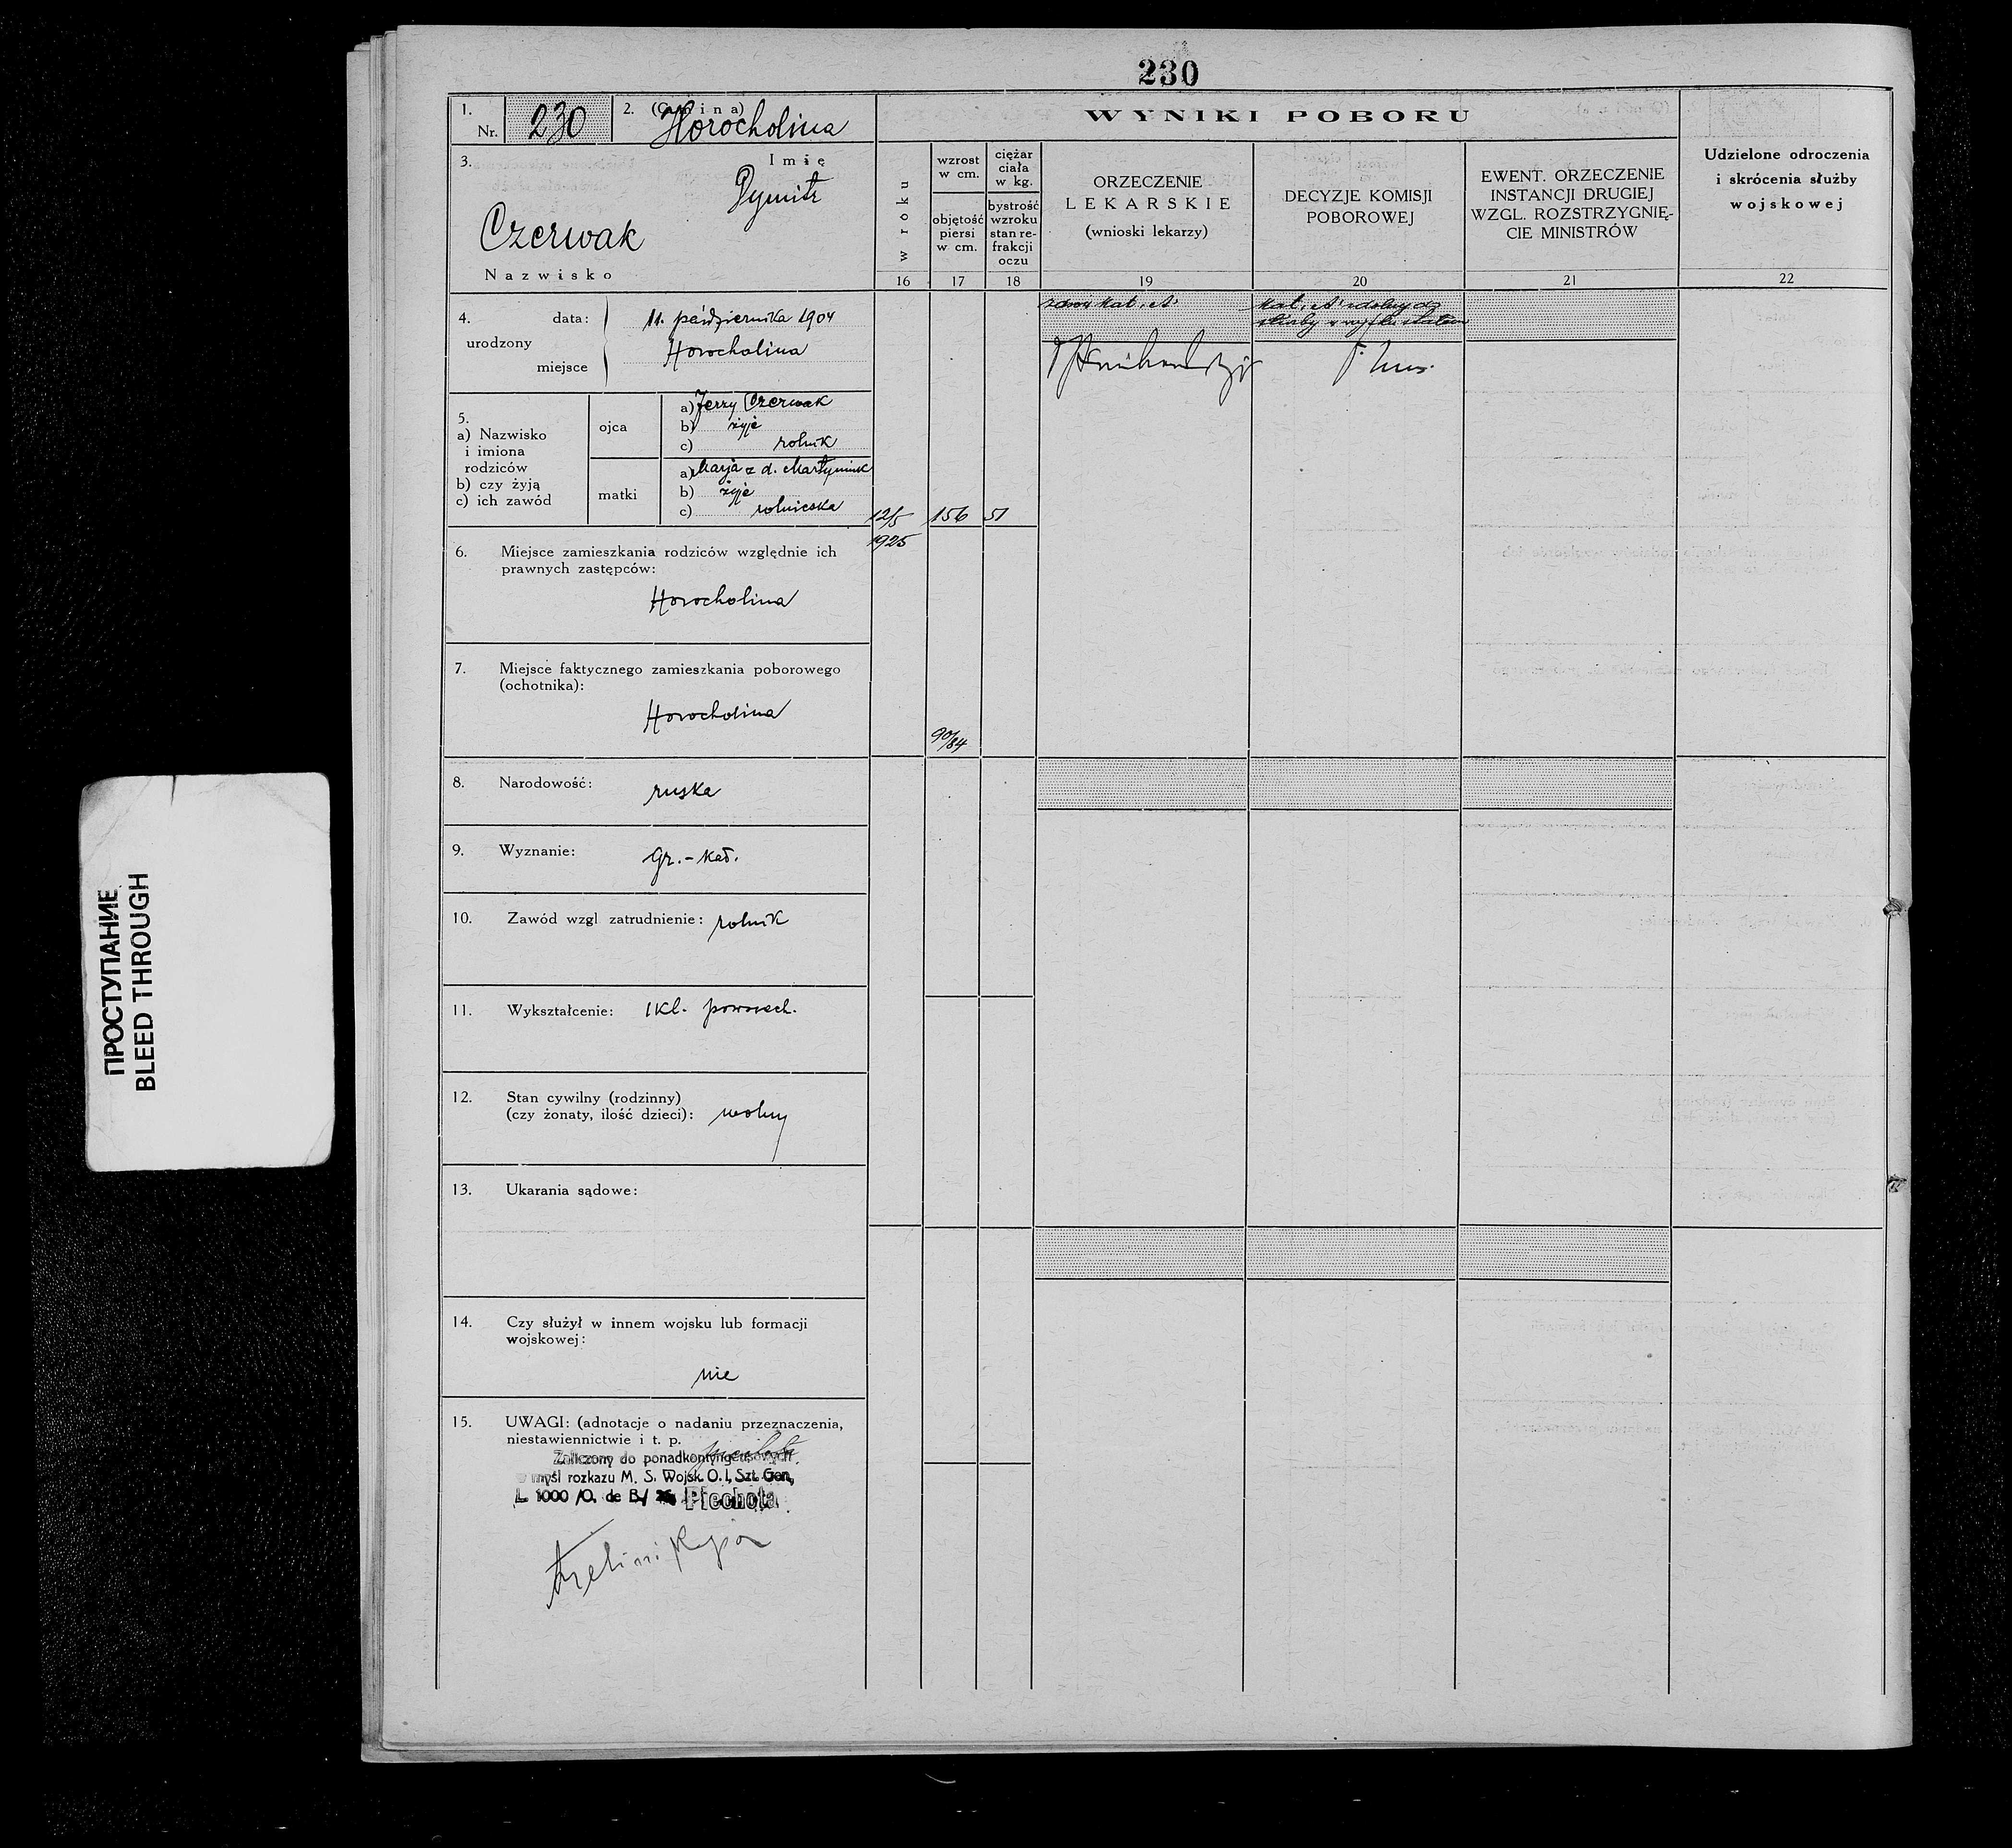 230
1.
Nr. 230
2. (Gmina)
Horocholina
3.
Imię
Dymitr
Czerwak
Nazwisko
4. urodzony
data: 11. października 1904
miejsce Horocholina
5.
a) Nazwisko
i imiona
rodziców
b) czy żyją
c) ich zawód
ojca
a) Jerzy Czerwak
b) żyje
c) rolnik
matki
a) Marja z d. Martyniuk
b) żyje
c) rolniczka
6. Miejsce zamieszkania rodziców względnie ich
prawnych zastępców:
Horocholina
7. Miejsce faktycznego zamieszkania poborowego
(ochotnika):
Horocholina
8. Narodowość: ruska
9. Wyznanie: gr.-kat.
10. Zawód wzgl zatrudnienie: rolnik
11. Wykształcenie: 1 kl. powszech.
12. Stan cywilny (rodzinny)
(czy żonaty, ilość dzieci): wolny
13. Ukarania sądowe:
14. Czy służył w innem wojsku lub formacji
wojskowej:
nie
15. UWAGI: (adnotacje o nadaniu przeznaczenia,
niestawiennictwie i t. p.
Zaliczony do ponadkontyngensowych
w myśl rozkazu M. S. Wojsk. O. I, Szt. Gen,
L. 1000 /O. de B./
Piechota
WYNIKI POBORU
w roku
16
wzrost
w cm.
objętość
piersi
w cm.
17
ciężar
ciała
w kg.
bystrość
wzroku
stan re-
frakcji
oczu
18
ORZECZENIE
LEKARSKIE
(wnioski lekarzy)
19
DECYZJE KOMISJI
POBOROWEJ
20
EWENT. ORZECZENIE
INSTANCJI DRUGIEJ
WZGL. ROZSTRZYGNIĘ-
CIE MINISTRÓW
21
Udzielone odroczenia
i skrócenia służby
wojskowej
22
12/5 156 51
1925
90/84
zdrów kat. A
kat. A zdolny do
służby w wojsku
ПРОСТУПАНИЕ
BLEED THROUGH